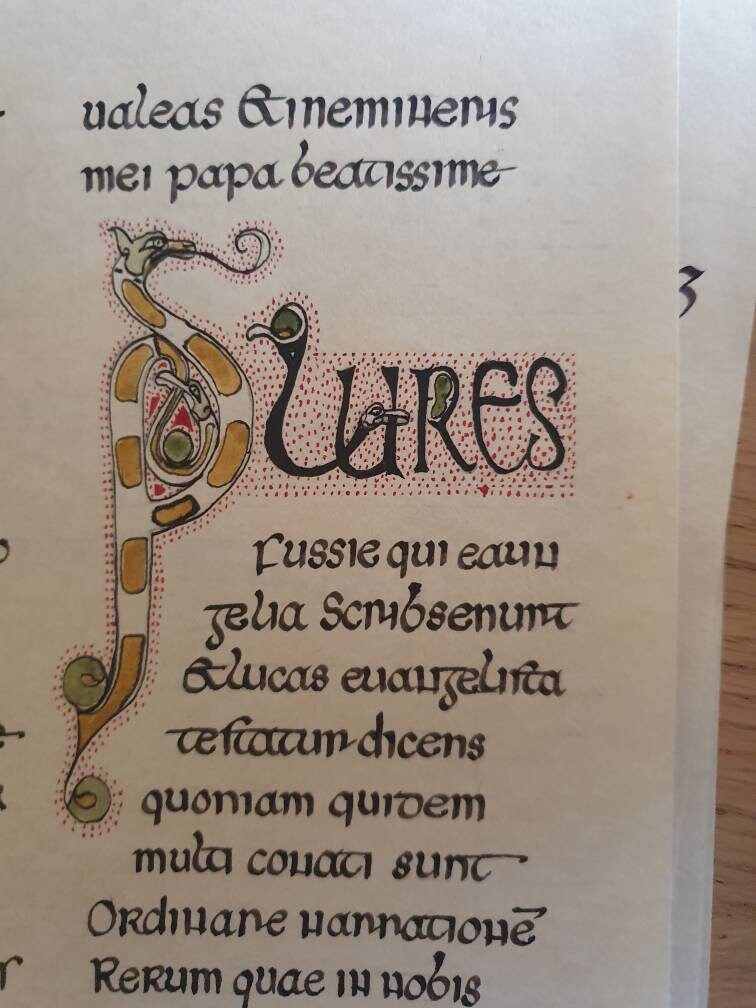 ualeas &memineris
mei papa beatissime
PLURES
Fussie qui euan
gelia Scribserunt
&lucas euangelista
testatur dicens
quoniam quidem
multi conati sunt
Ordinare narrationē
Rerum quae in nobis